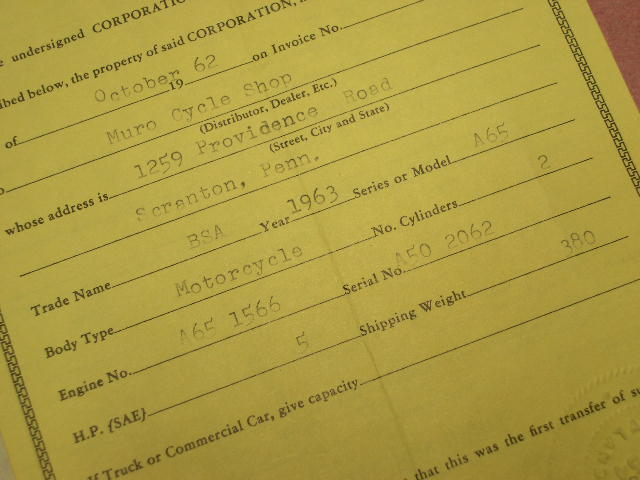 undersigned CORPORATIO
ibed below, the property of said CORPORATION,
October 19 62 on Invoice No.
of Muro Cycle Shop
(Distributor, Dealer, Etc.)
1259 Providence Road
whose address is (Street, City and State)
Scranton, Penn.
Trade Name BSA Year 1963 Series or Model A65
Body Type Motorcycle No. Cylinders 2
Engine No. A65 1566 Serial No. A50 2062
H.P. (SAE) 5 Shipping Weight 380
If Truck or Commercial Car, give capacity
that this was the first transfer of su